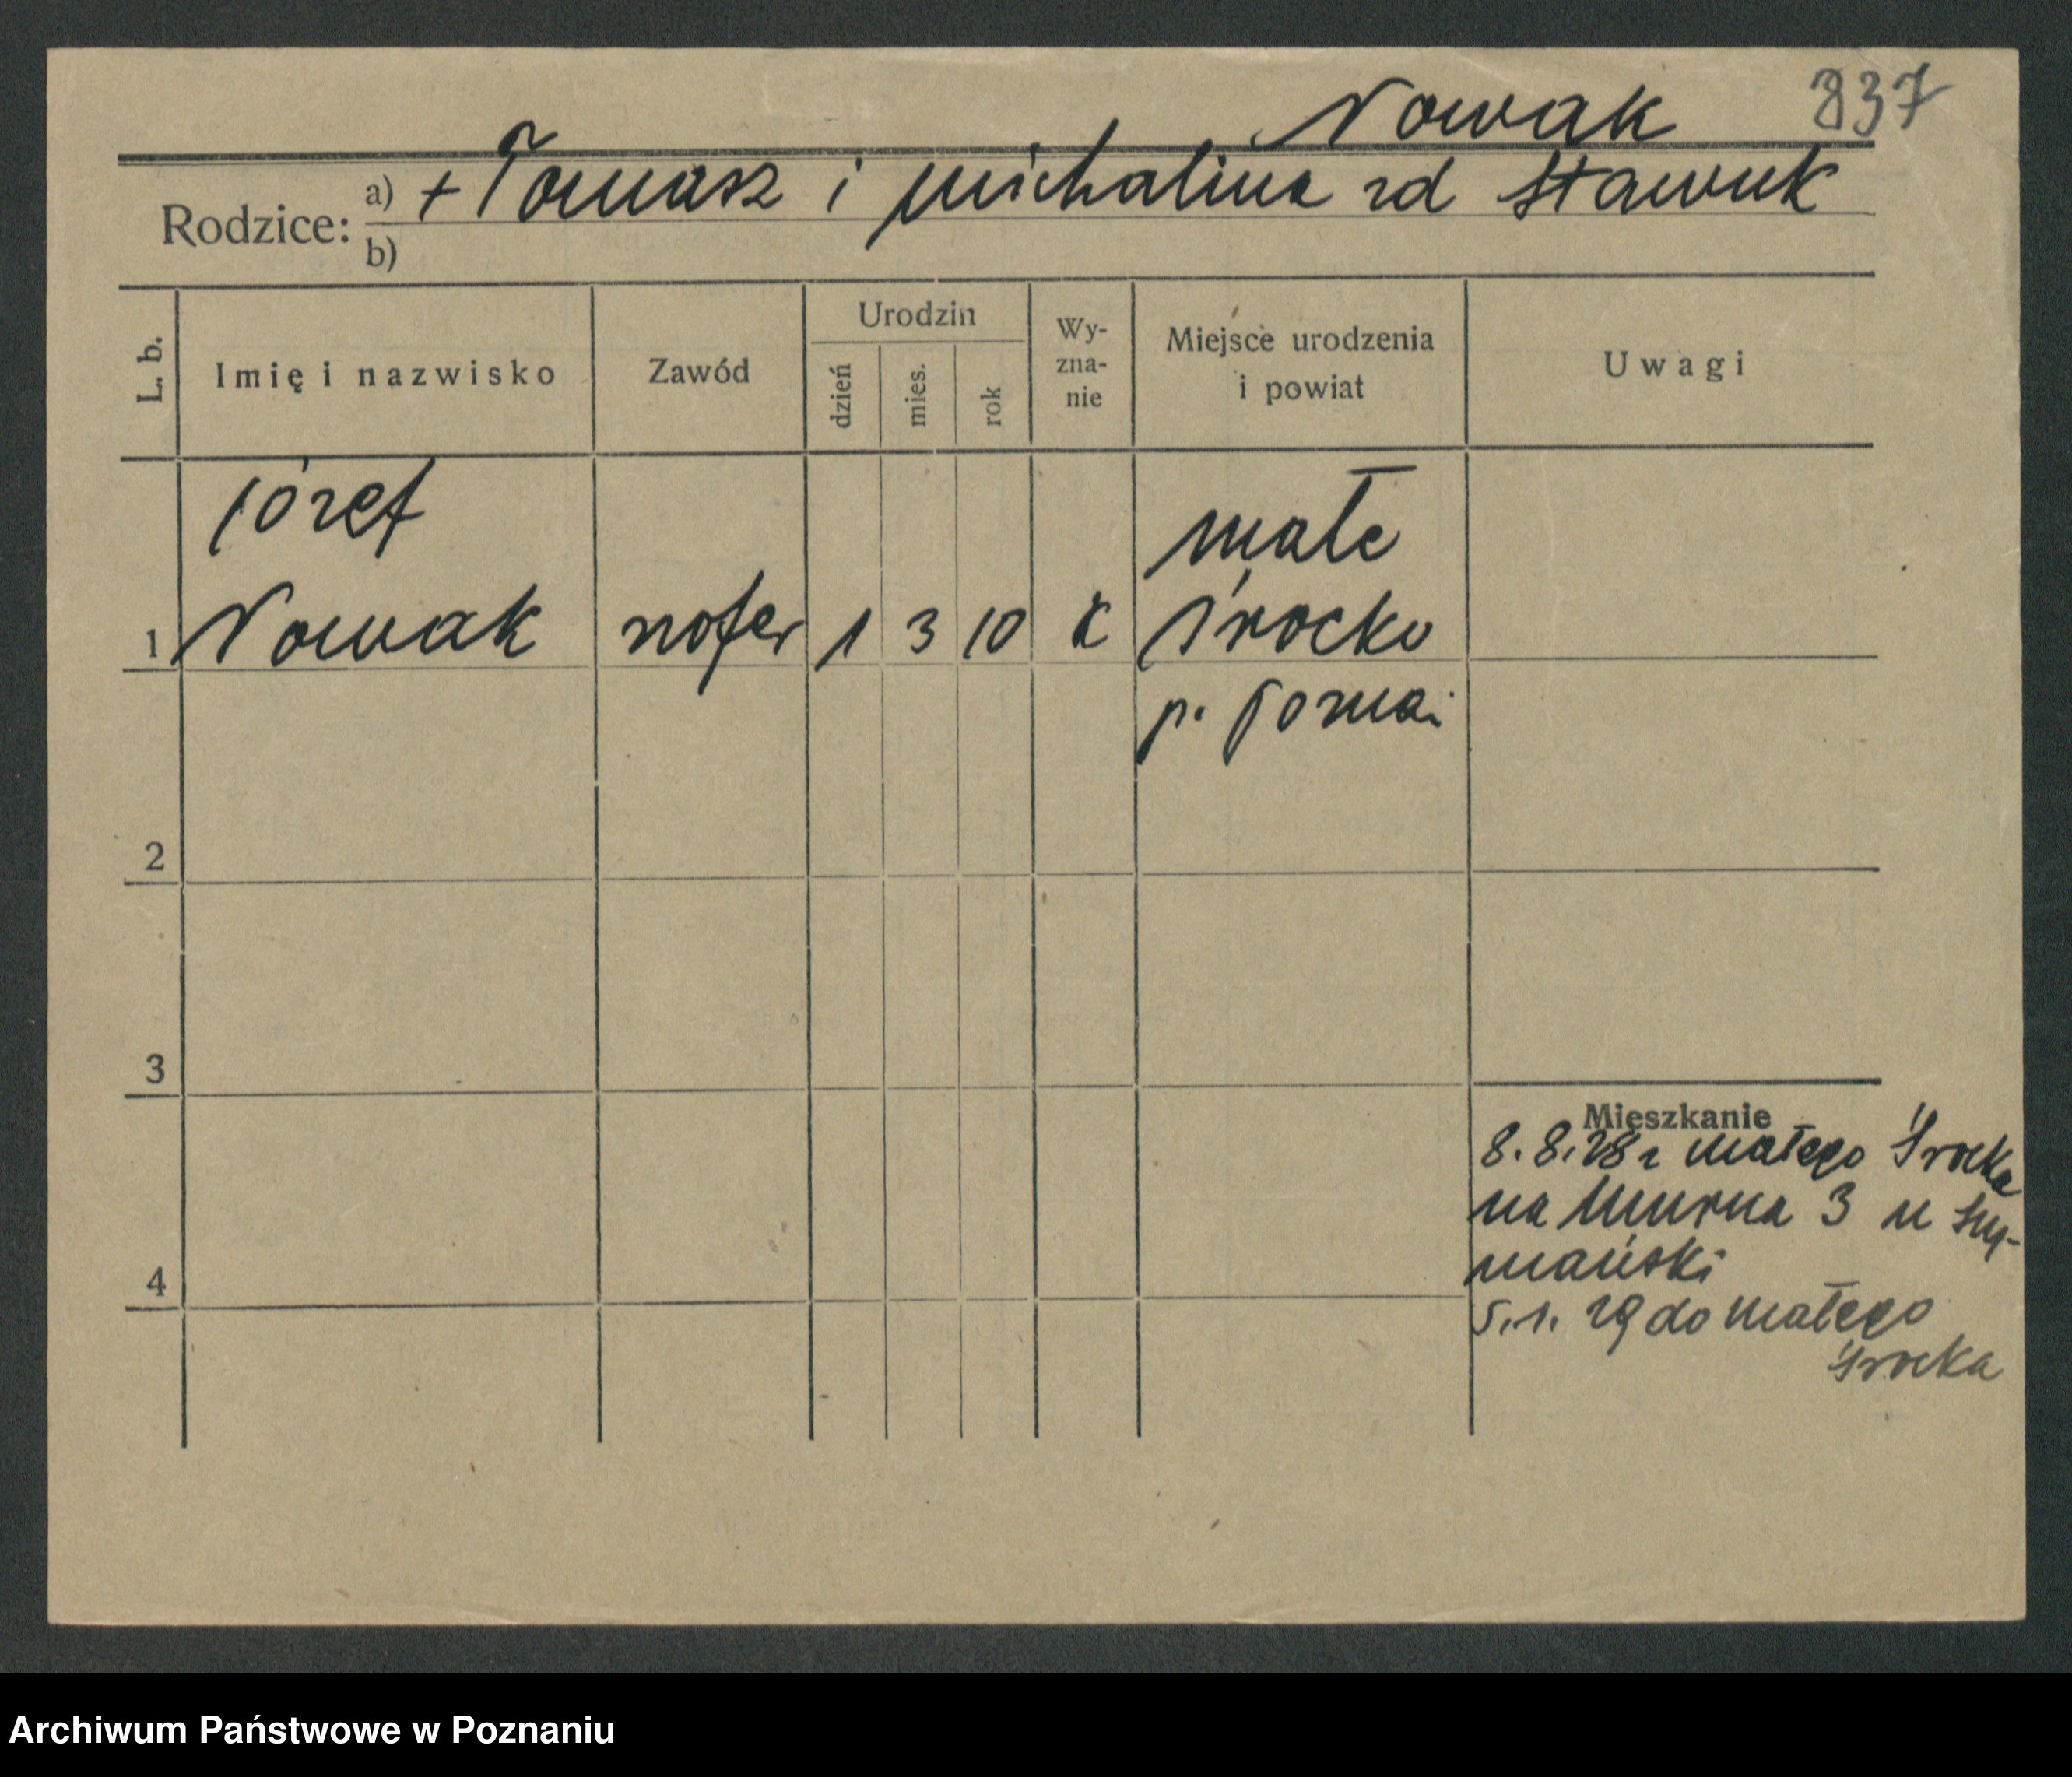 Nowak 837
Rodzice: a) + Tomasz i Michalina zd
b)
L. b. Imię i nazwisko Zawód Urodzin dzień mies. rok Wy-zna-nie Miejsce urodzenia i powiat Uwagi
Józef
Małe
1 Nowak szofer 1 3 10 k Srocko
p. Poznań
2
3
Mieszkanie
8.8.28 z Małego Srocka
na Murna 3 u Szy-
mański
4
5.1.29 do Małego
Srocka
Archiwum Państwowe w Poznaniu